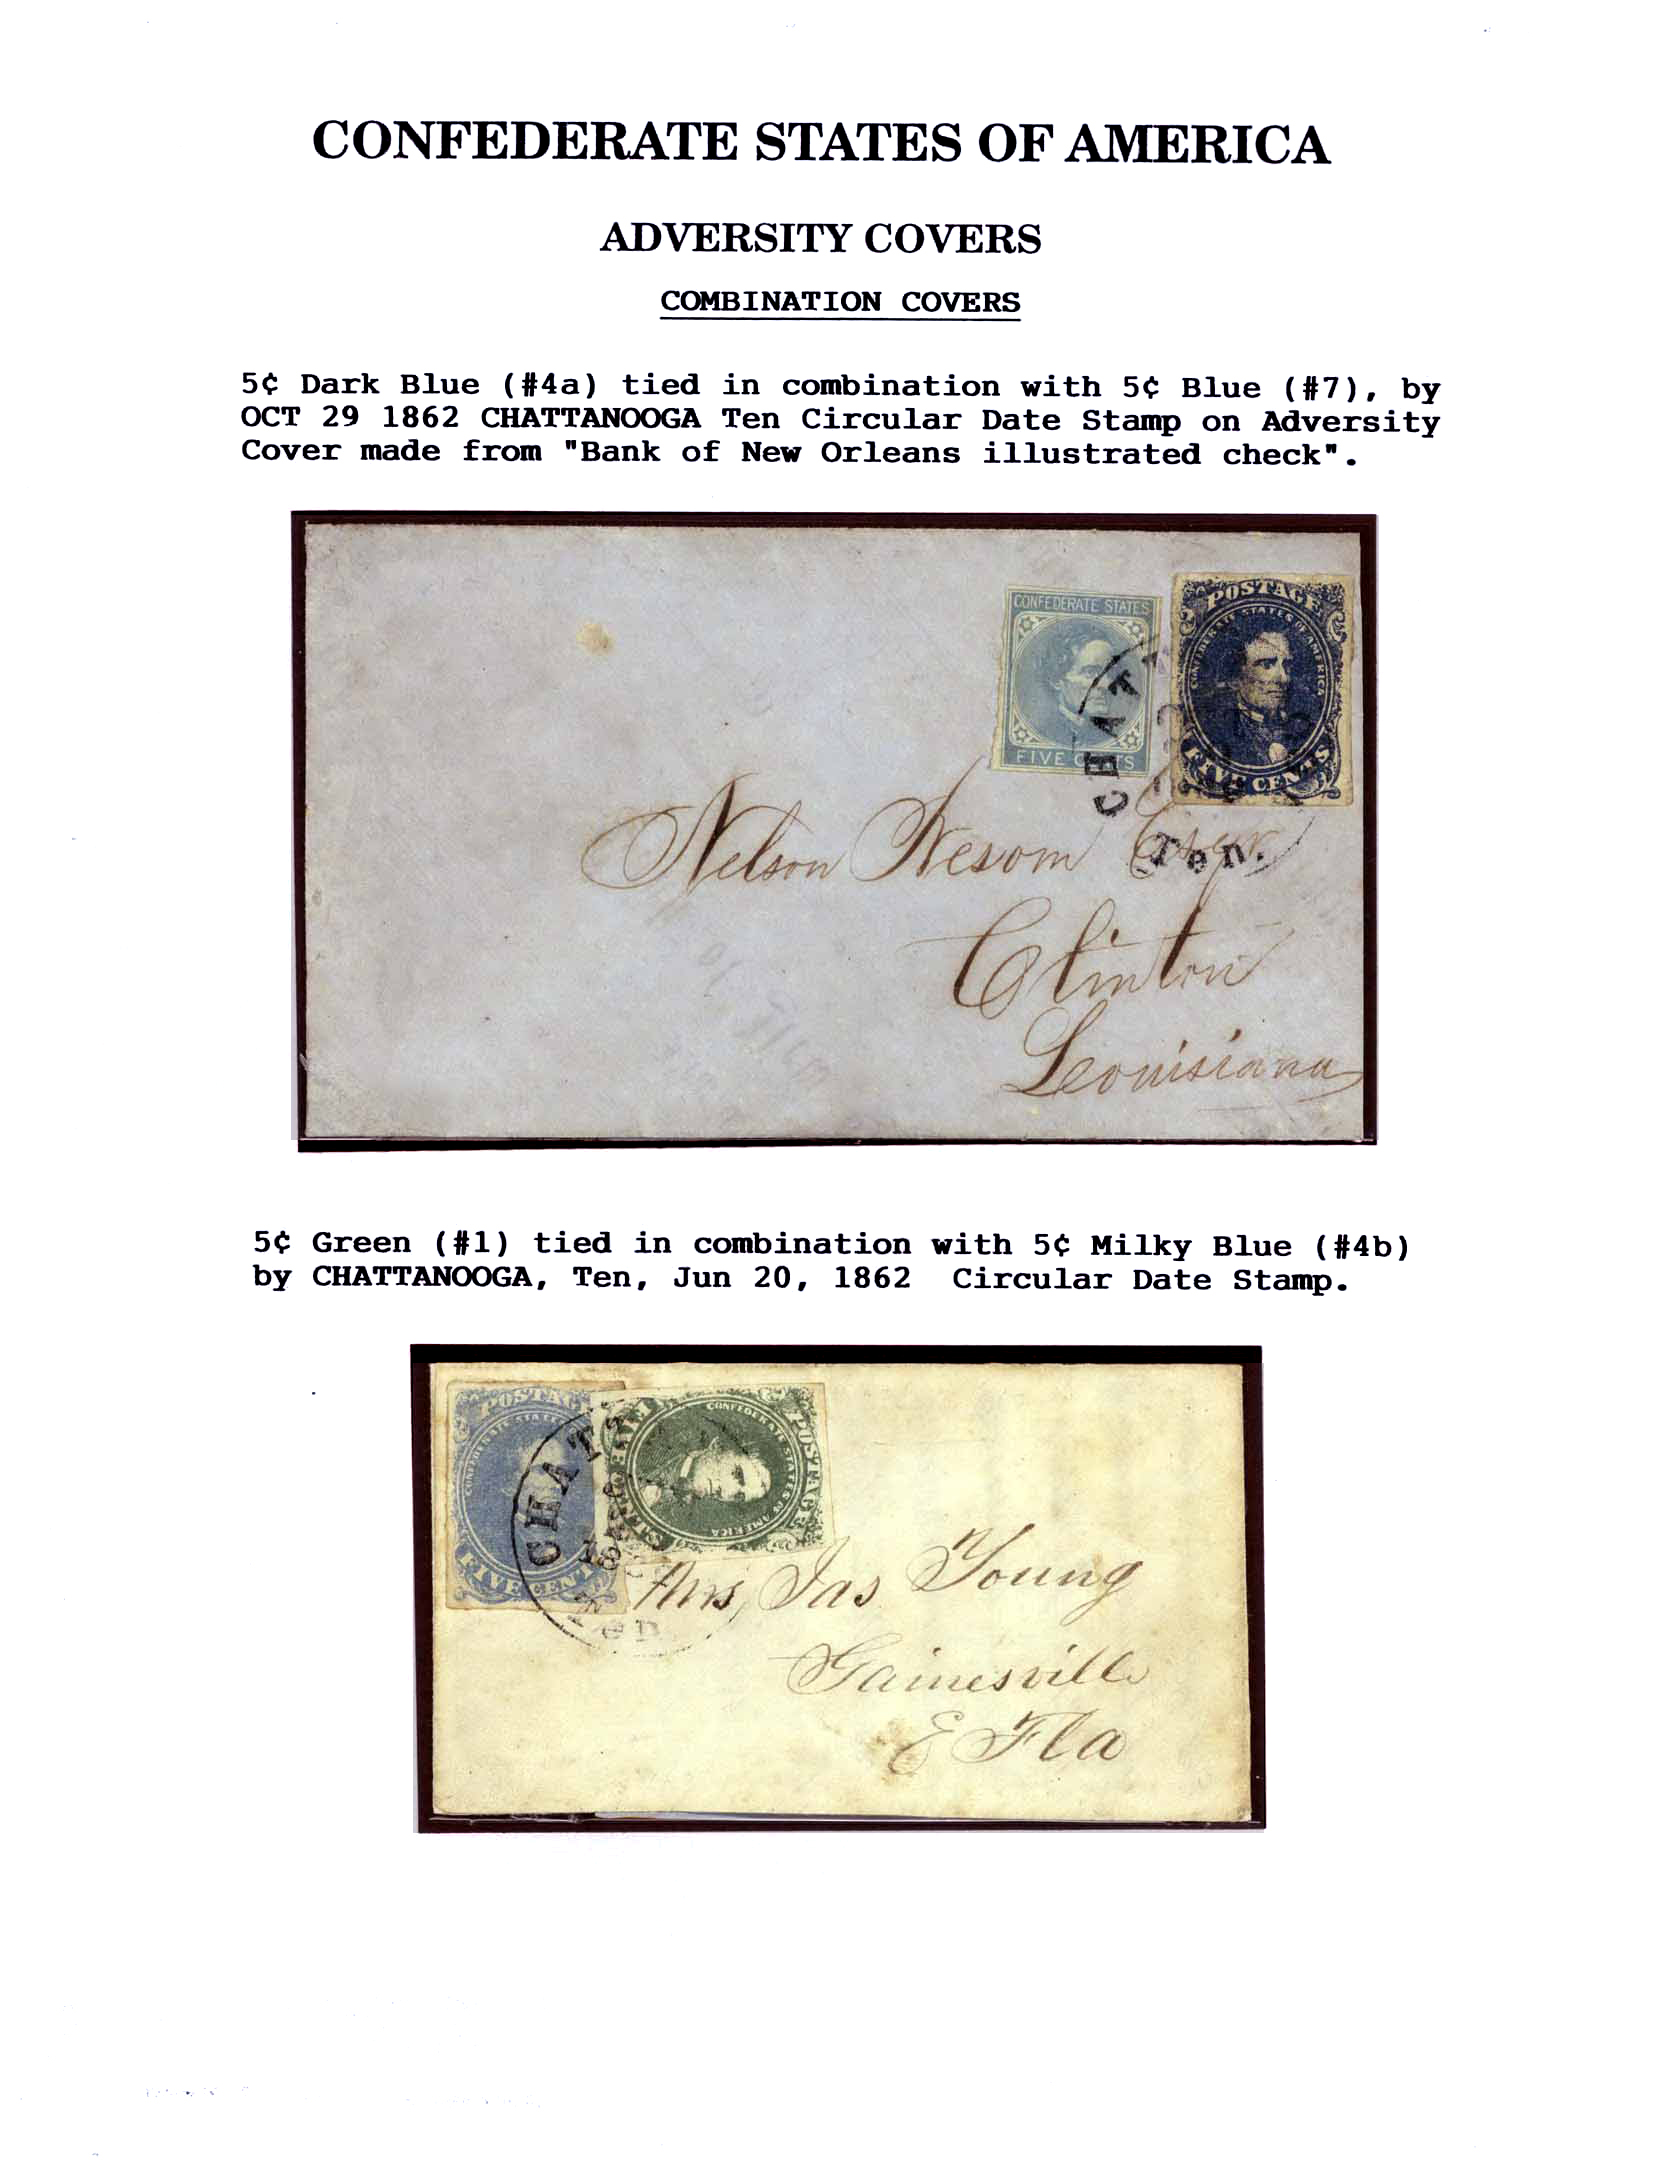 CONFEDERATE STATES OF AMERICA
ADVERSITY COVERS
COMBINATION COVERS
5¢ Dark Blue (#4a) tied in combination with 5¢ Blue (#7), by
OCT 29 1862 CHATTANOOGA Ten Circular Date Stamp on Adversity
Cover made from "Bank of New Orleans illustrated check".
CONFEDERATE STATES
FIVE
POSTAGE
CONFEDERATE STATES OF AMERICA
FIVE CENTS
CHATTA
Ten.
Nelson
Clinton
Leouisiana
5¢ Green (#1) tied in combination with 5¢ Milky Blue (#4b)
by CHATTANOOGA, Ten, Jun 20, 1862 Circular Date Stamp.
POSTAGE
CONFEDERATE STATES
FIVE CENT
CONFEDERATE STATES OF AMERICA
POSTAGE
FIVE
CHATT
Ten
Mrs, Jas Young
Gainesville
E Fla